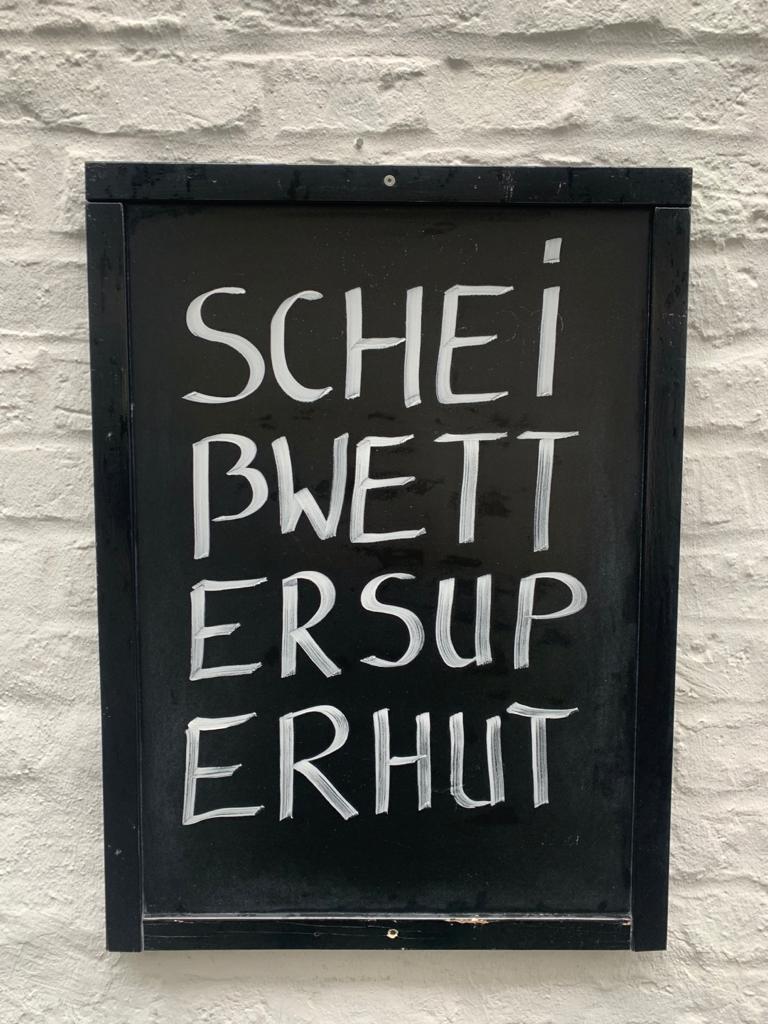 SCHEi
ßWETT
ERSUP
ERHUT